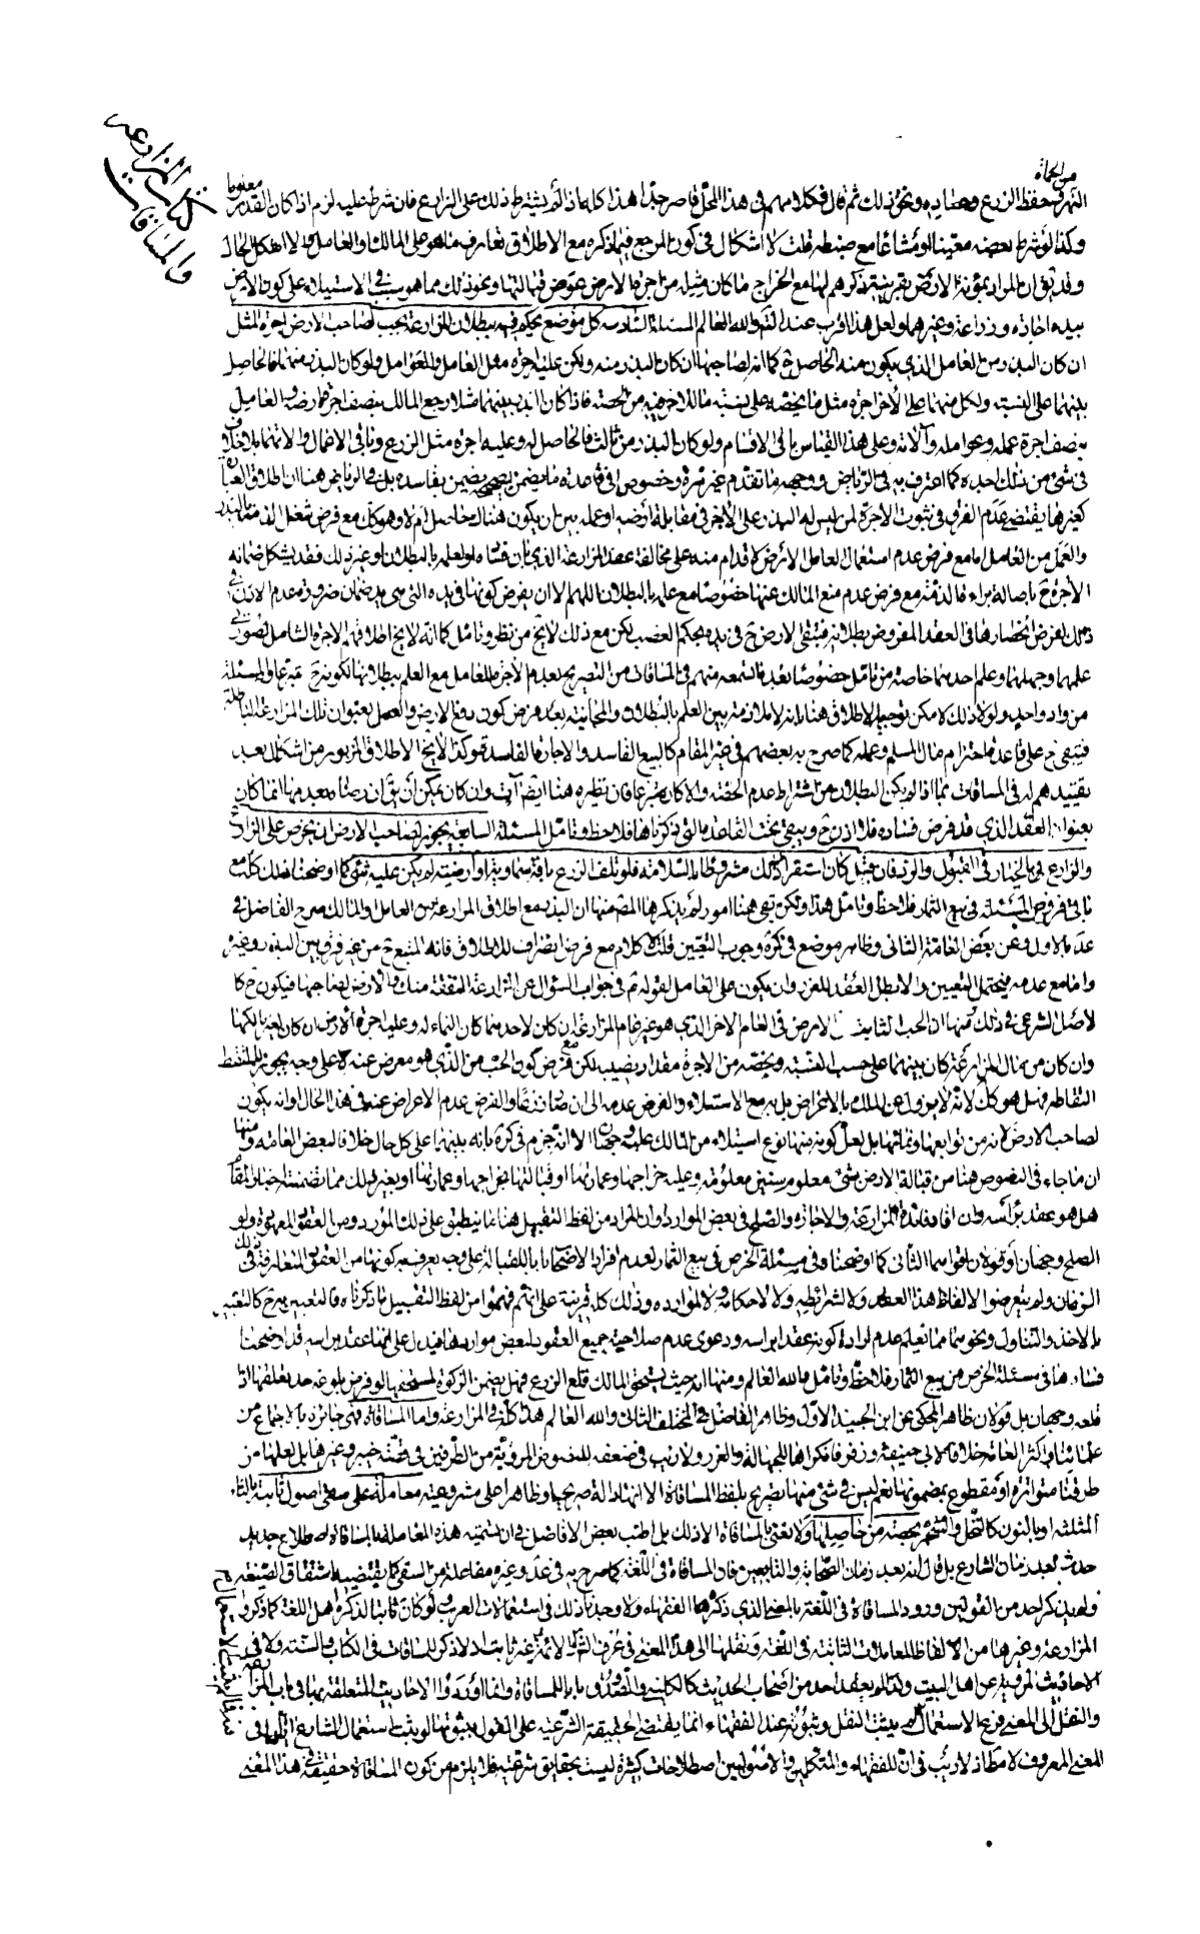 كتاب المزارعة
والمساقات
من الحماة
النهر وحفظ الزرع وحصاده ونحو ذلك ثم قال فكلامهم في هذا المحل قاصر جدا هذا كله اذا لم يشترط ذلك على الزارع فان شرط عليه لزم اذا كان القدر معلوما
وكذا لو شرط بعضه معينا او مشاعا مع ضبطه قلت لا اشكال في كون المرجع فيما ذكره مع الاطلاق تعارف ما هو على المالك والعامل والا اشكل الحال
وقد يق ان المراد بمؤنة الارض بقرينة ذكرهم لها مع الخراج ما كان مثله من اجرة الارض عوض قبالتها ونحو ذلك مما هو سبب في الاستيلاء على كون الارض
بيده اجارة وزراعة وغيرهما ولعل هذا اقرب عند التامل والله العالم المسئلة السادسة كل موضع يحكم فيه ببطلان المزارعة يجب لصاحب الارض اجرة المثل
ان كان البذر من العامل الذي يكون منه الحاصل ح كما انه لصاحبها ان كان البذر منه ولكن عليه اجرة مثل العامل والعوامل ولو كان البذر منهما فالحاصل
بينهما على النسبة ولكل منهما على الاخر اجرة مثل ما يخصه على نسبة ما للاخر فيه من الحصة فاذا كان البذر بينهما مثلا رجع المالك بنصف اجرة ارضه والعامل
بنصف اجرة عمله وعوامله وآلاته وعلى هذا القياس باقي الاقسام ولو كان البذر من ثالث فالحاصل له وعليه اجرة مثل الزرع وباقي الاعمال والآتهما بلا خلاف
في شئ من ذلك اجده كما اعترف به في الرياض ووجهه ما تقدم غير مرة وخصوص في قاعدة ما يضمن بصحيحه يضمن بفاسده بل في الرياض هنا ان اطلاق العبارة
كغيرها يقتضي عدم الفرق في ثبوت الاجرة لمن ليس له البذر على الاخر في مقابلة ارضه او عمله بين ان يكون هناك حاصل ام لا وهو كك مع فرض شغل الارض بالبذر
والعمل من العامل اما مع فرض عدم استعمال العامل الارض لاقدام منه على مخالفة عقد المزارعة الذي بان فساده او لعلمه بالبطلان او غير ذلك فقد يشكل ضمانه
الاجرة ح باصالة براءة الذمة مع فرض عدم منع المالك عنها خصوصا مع علمه بالبطلان اللهم الا ان يفرض كونها في يده التي هي يد ضمان ضرورة عدم الاذن في
ذلك لفرض انحصارها في العقد المفروض بطلانه فتبقى الارض ح في يده بحكم الغصب لكن مع ذلك لا يخ من نظر وتامل كما انه لا يخ اطلاقهم الاجرة الشامل لصورتي
علمهما وجهلهما وعلم احدهما خاصة من تامل خصوصا بعد ما تسمعه منهم في المساقات من التصريح بعدم الاجرة للعامل مع العلم ببطلانها لكونه ح متبرعا والمسئلة
من واد واحد ولولا ذلك لامكن توجيه الاطلاق هنا بانه لا ملازمة بين العلم بالبطلان والمجانية بعد فرض كون دفع الارض والعمل بعنوان تلك المزارعة الباطلة
فيبقى ح على قاعدة احترام مال المسلم وعمله كما صرح به بعضهم في غير المقام كالبيع الفاسد والاجارة الفاسدة وكذا لا يخ الاطلاق المزبور من اشكال بعد
تقييدهم له في المساقات بما اذا لم يكن البطلان من اشتراط عدم الحصة والا كان متبرعا فان نظيره هنا ايضا آت وان كان يمكن ان يق ان رضاه بعدمها انما كان
بعنوان العقد الذي قد فرض فساده فلا اذن ح ويبقى تحت القاعدة التي ذكرناها فلاحظ وتامل المسئلة السابعة يجوز لصاحب الارض ان يخرص على الزارع
والزارع بالخيار في القبول والرد فان قبل كان استقرار ذلك مشروطا بالسلامة فلو تلف الزرع بافة سماوية او ارضية لم يكن عليه شئ كما اوضحنا ذلك كله مع
باقي فروض المسئلة في بيع الثمار فلاحظ وتامل هذا ولكن بقي هنا امور لم يذكرها المصنف منها ان البذر مع اطلاق المزارعة من العامل او المالك صرح الفاضل في
عد بالاول وعن بعض العامة الثاني وظاهر موضع في كرة وجوب التعيين قلت لا كلام مع فرض انصراف للاطلاق فانه المتبع ح من غير فرق بين البذر وغيره
واما مع عدمه فيحتمل التعيين والا بطل العقد للغرر وان يكون على العامل لقوله ع في جواب السؤال عن المزارعة النفقة منك والارض لصاحبها فيكون ح كا
لاصل الشرعي في ذلك ومنها ان الحب الثابت في الارض في العام الاخر الذي هو غير عام المزارعة ان كان لاحدهما كان النماء له وعليه اجرة الارض ان كان لغير مالكها
وان كان من مال المزارعة كان بينهما على حسب النسبة ويخصه من الاجرة مقدار نصيبه لكن مع فرض كون الحب من الذي هو معرض عنه لا على وجه يجوز للملتقط
التقاطه فهل هو كل لانه لا يزول عن الملك بالاعراض بل به مع الاستيلاء والفرض عدمه الى ان صار زرعا والفرض عدم الاعراض عنه في هذا الحال او انه يكون
لصاحب الارض لانه من توابعها ونمائها بل لعل كونه فيها نوع استيلاء من المالك عليه وجهان الا انه جزم في كرة بانه بينهما على كل حال خلافا لبعض العامة ومنها
ان ما جاء في النصوص هنا من قبالة الارض بشئ معلوم سنين معلومة وعليه خراجها وعمارتها او قبالتها بخراجها وعمارتها او بغير ذلك مما تضمنته اخبار المقام
هل هو عقد برأسه وان افاد فائدة المزارعة والاجارة والصلح في بعض الموارد او ان المراد من لفظ التقبيل هنا ما ينطبق على ذلك المورد من العقود المعهودة ولو
الصلح وجهان او قولان اقواهما الثاني كما اوضحناه في مسئلة الخرص في بيع الثمار لعدم افراد الاصحاب بابا للقبالة على وجه يعرف به كونها من العقود المتعارفة في ذلك
الزمان ولم يتعرضوا لالفاظ هذا العقد ولا لشرائطه ولا لاحكامه ولا لموارده وذلك كله قرينة على انهم فهموا من لفظ التقبيل ما ذكرناه فالتعبير به ح كالتعبير
بالاخذ والتناول ونحوهما مما يعلم عدم ارادة كونه عقدا براسه ودعوى عدم صلاحية جميع العقود لبعض مواردها فيدل على انها عقد براسه قد اوضحنا
فسادها في مسئلة الخرص من بيع الثمار فلاحظ وتامل والله العالم ومنها انه حيث يستحق المالك قلع الزرع فهل يضمن الزكوة لمستحقها لو فرض بلوغه حد تعلقها اذا
قلعه وجهان بل قولان ظاهر المحكي عن ابن الجنيد الاول وظاهر الفاضل في المختلف الثاني والله العالم هذا كله في المزارعة واما المساقاة فهي جائزة بالاجماع من
علمائنا واكثر العامة خلافا لابي حنيفة وزفر فانكراها للجهالة والغرر ولا ريب في ضعفه للنصوص المروية من الطرفين في قصة خيبر وغيرها بل لعلها من
طرقنا متواترة او مقطوع بمضمونها نعم ليس في شئ منها تصريح بلفظ المساقاة الا انها دالة صريحا وظاهرا على مشروعية معاملة على سقي اصول ثابتة بالثاء
المثلثة او بالنون كالنخل والشجر بحصة من حاصلها ولا نعني بالمساقاة الا ذلك بل اطنب بعض الافاضل في ان تسمية هذه المعاملة بالمساقاة اصطلاح جديد
حدث بعد زمان الشارع بل قال انه بعد زمان الصحابة والتابعين فان المساقاة في اللغة كما صرح به في عد وغيره مفاعلة من السقي كما يقتضيه اشتقاق الصيغة
ولم يذكر احد من الفريقين ورود المساقاة في اللغة بالمعنى الذي ذكرها الفقهاء ولا وجدنا ذلك في استعمالات العرب ولو كان ثابتا لذكره اهل اللغة كما ذكروا
المزارعة وغيرها من الالفاظ للمعاملات الثابتة في اللغة ونقلها الى هذا المعنى في عرف الائمة غير ثابت اذ لا ذكر للمساقات في الكتاب والسنة ولا في
الاحاديث المروية عن اهل البيت ولذا لم يعقد احد من اصحاب الحديث كالكليني والصدوق بابا للمساقاة وانما اوردوا الاحاديث المتعلقة بها في باب المزارعة
والنقل الى المعنى فرع الاستعمال ولم يثبت النقل وثبوته عند الفقهاء انما يقتضي الحقيقة الشرعية على القول بثبوتها لو ثبت استعمال الشارع اللفظ في
المعنى المعروف لا مطلقا اذ لا ريب في ان للفقهاء والمتكلمين والاصوليين اصطلاحات كثيرة ليست بحقايق شرعية فلا يلزم من كون المساقاة حقيقة في هذا المعنى